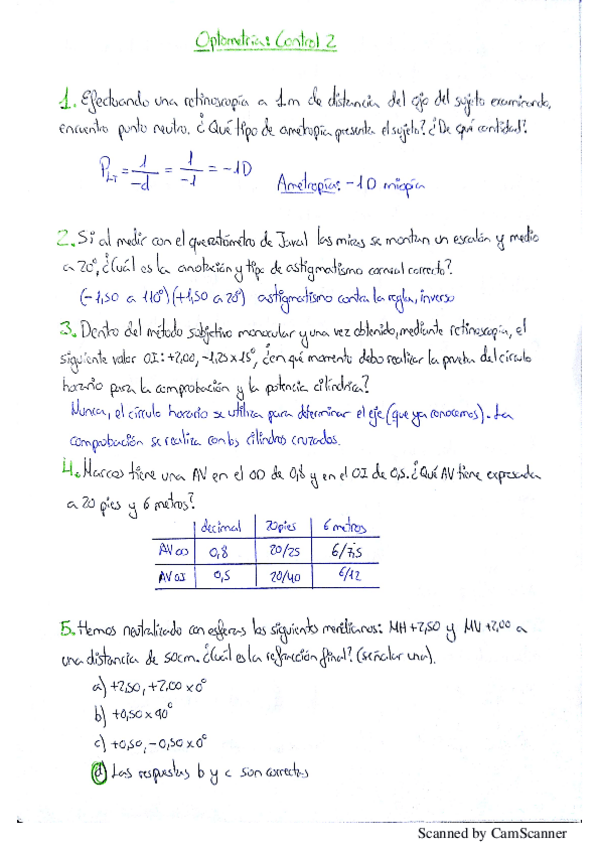 Optometría: Control 2
1. Efectuando una retinoscopía a 1m de distancia del ojo del sujeto examinando,
encuentro punto neutro. ¿Qué tipo de ametropía presenta el sujeto? ¿De qué cantidad?
P_LT = 1/-d = 1/-1 = -1D
Ametropía: -1D miopía
2. Si al medir con el queratómetro de Javal las miras se montan un escalón y medio
a 20°, ¿Cuál es la anotación y tipo de astigmatismo corneal correcto?
(-1,50 a 110°)(+1,50 a 20°) astigmatismo contra la regla, inverso
3. Dentro del método subjetivo monocular y una vez obtenido, mediante retinoscopía, el
siguiente valor OI: +2,00, -1,25x15°, ¿en qué momento debo realizar la prueba del círculo
horario para la comprobación y la potencia cilíndrica?
Nunca, el círculo horario se utiliza para determinar el eje (que ya conocemos). La
comprobación se realiza con los cilindros cruzados.
4. Marcos tiene una AV en el OD de 0,8 y en el OI de 0,5. ¿Qué AV tiene expresada
a 20 pies y 6 metros?
decimal 20pies 6 metros
AV OD 0,8 20/25 6/7,5
AV OI 0,5 20/40 6/12
5. Hemos neutralizado con esferas los siguiento meridianos: MH +2,50 y MV +2,00 a
una distancia de 50cm. ¿Cuál es la refracción final? (señalar una).
a) +2,50, +2,00 x 0°
b) +0,50 x 90°
c) +0,50, -0,50 x 0°
d) Las respuestas b y c son correctas
Scanned by CamScanner